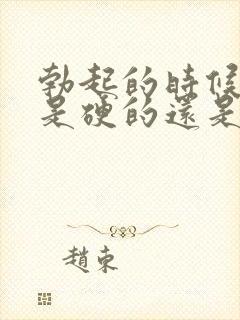 勃起的時候
是硬的還是
趙東